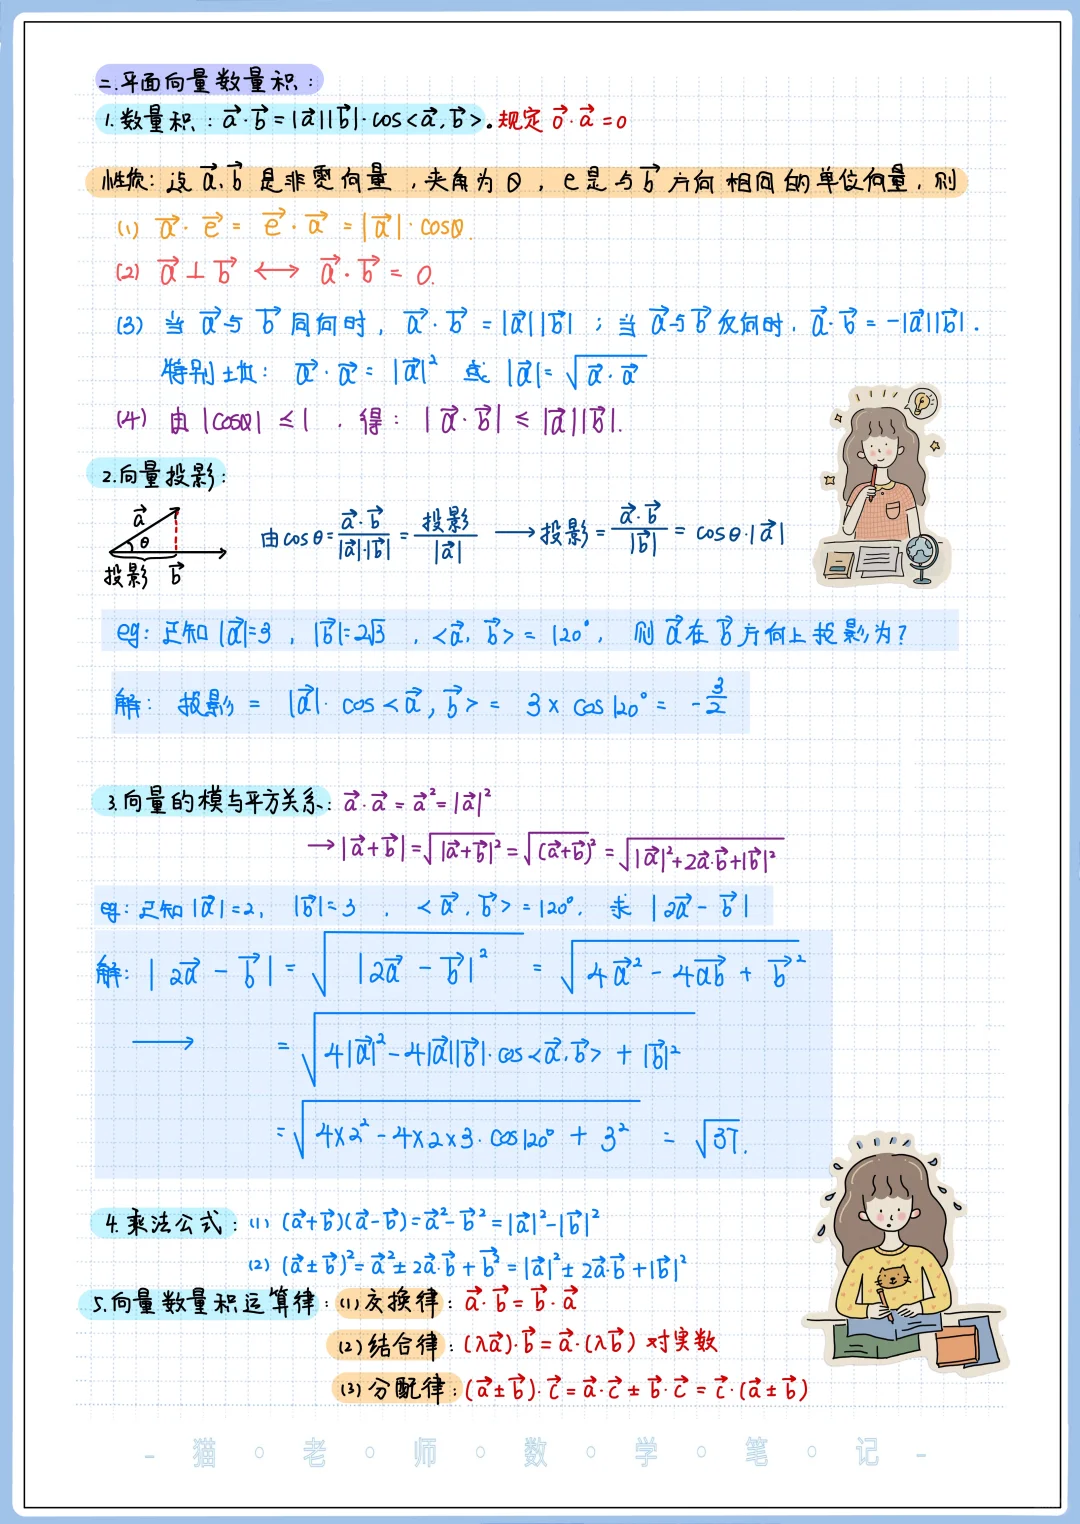 二.平面向量数量积:
1.数量积: a⃗·b⃗=|a⃗||b⃗|·cos<a⃗,b⃗>.规定 0⃗·a⃗=0
性质:设 a⃗、b⃗ 是非零向量,夹角为θ,e是与b⃗方向相同的单位向量,则
(1) a⃗·e⃗= e⃗·a⃗ =|a⃗|·cosθ.
(2) a⃗⊥b⃗ ⟷ a⃗·b⃗=0.
(3) 当a⃗与b⃗同向时, a⃗·b⃗=|a⃗||b⃗| ;当a⃗与b⃗反向时,a⃗·b⃗=-|a⃗||b⃗|.
特别地: a⃗·a⃗=|a⃗|² 或 |a⃗|=√(a⃗·a⃗)
(4) 由|cosθ|≤1 ,得: |a⃗·b⃗|≤|a⃗||b⃗|.
2.向量投影:
a⃗
θ
投影 b⃗
由cosθ=a⃗·b⃗/(|a⃗|·|b⃗|)=投影/|a⃗| →投影=a⃗·b⃗/|b⃗|=cosθ·|a⃗|
eg:已知|a⃗|=3,|b⃗|=2√3,<a⃗,b⃗>=120°,则a⃗在b⃗方向上投影为?
解: 投影=|a⃗|·cos<a⃗,b⃗>=3×cos120°=-3/2
3.向量的模与平方关系: a⃗·a⃗=a⃗²=|a⃗|²
→|a⃗+b⃗|=√|a⃗+b⃗|²=√(a⃗+b⃗)²=√(|a⃗|²+2a⃗·b⃗+|b⃗|²)
eg:已知|a⃗|=2, |b⃗|=3 ,<a⃗,b⃗>=120°, 求|2a⃗-b⃗|
解: |2a⃗-b⃗|=√|2a⃗-b⃗|²=√(4a⃗²-4a⃗b⃗+b⃗²)
→ =√(4|a⃗|²-4|a⃗||b⃗|·cos<a⃗,b⃗>+|b⃗|²)
=√(4×2²-4×2×3·cos120°+3²)=√37.
4.乘法公式:(1) (a⃗+b⃗)(a⃗-b⃗)=a⃗²-b⃗²=|a⃗|²-|b⃗|²
(2) (a⃗±b⃗)²=a⃗²±2a⃗·b⃗+b⃗²=|a⃗|²±2a⃗·b⃗+|b⃗|²
5.向量数量积运算律:(1)交换律: a⃗·b⃗=b⃗·a⃗
(2)结合律:(λa⃗)·b⃗=a⃗·(λb⃗) 对实数
(3)分配律:(a⃗±b⃗)·c⃗=a⃗·c⃗±b⃗·c⃗=c⃗·(a⃗±b⃗)
- 猫·老·师·数·学·笔·记 -